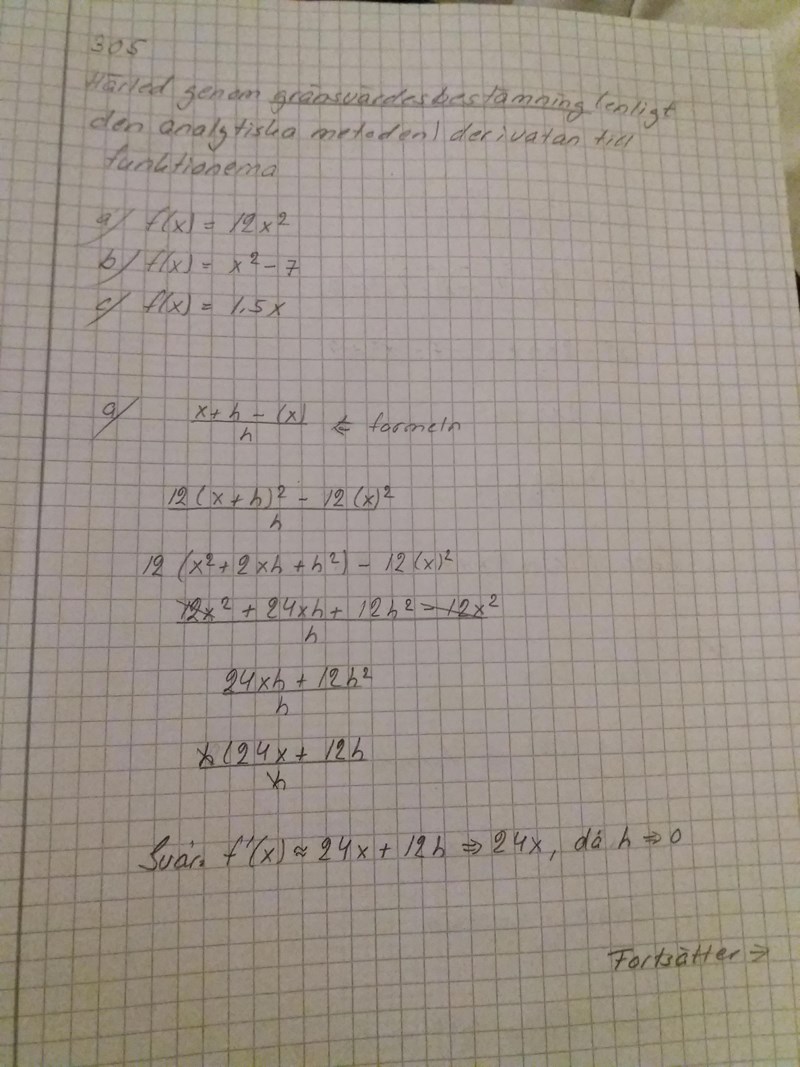 305
Härled genom gränsvärdesbestämning (enligt
den analytiska metoden) derivatan till
funktionerna
a) f(x) = 12x²
b) f(x) = x² - 7
c) f(x) = 1.5x
a) x+h - (x) / h ⇐ formeln
12(x+h)² - 12(x)² / h
12 (x² + 2xh + h²) - 12(x)²
12x² + 24xh + 12h² - 12x² / h
24xh + 12h² / h
h(24x + 12h / h
Svar. f'(x) ≈ 24x + 12h ⇒ 24x, då h ⇒ 0
Fortsätter ⇒